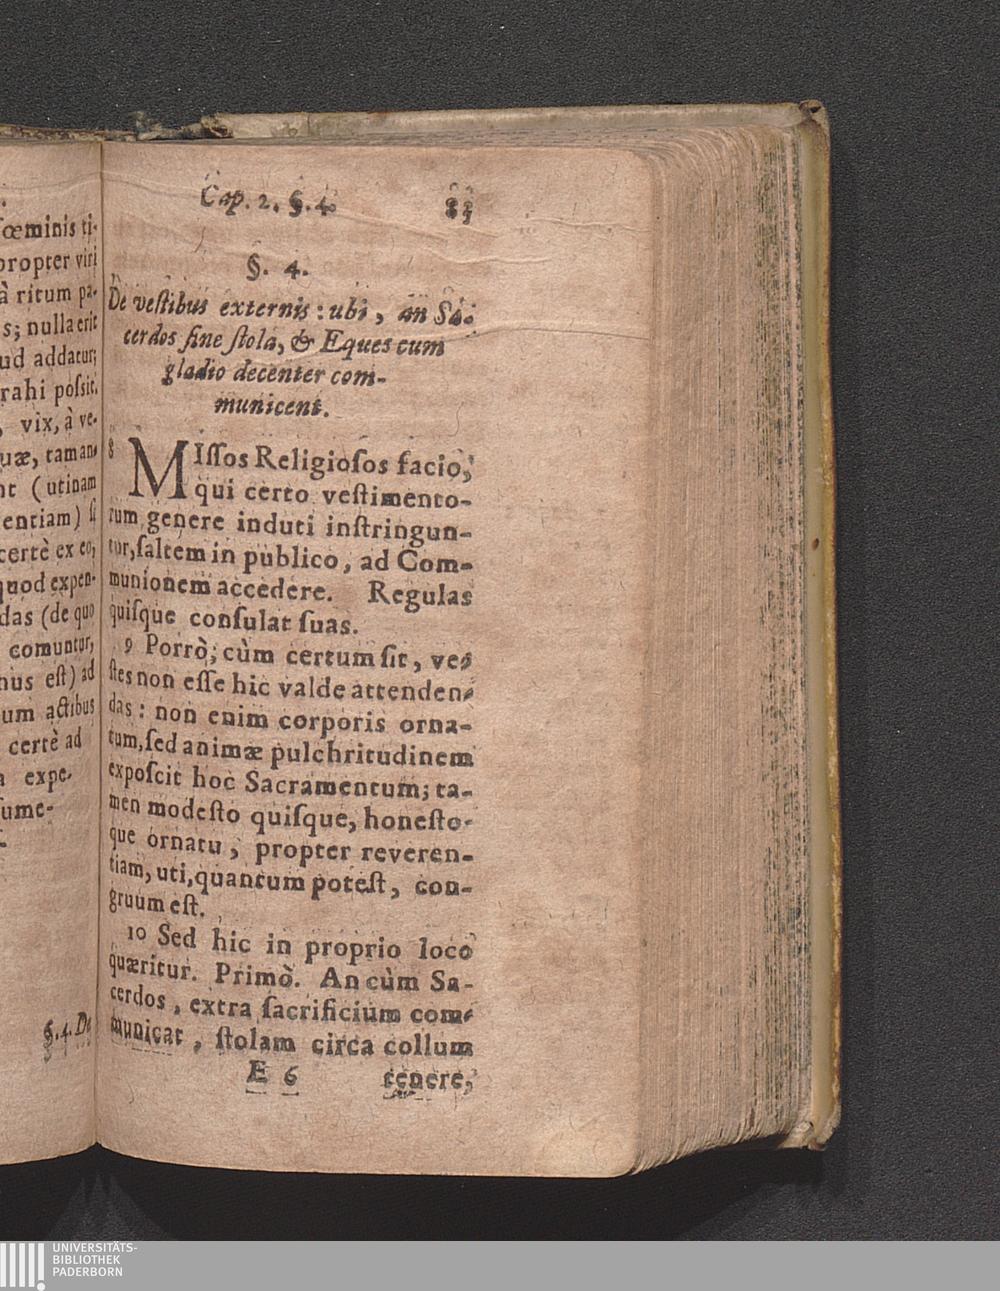 fœminis ti-
propter viri
à ritum pa-
s; nulla erit
ud addatur;
rahi possit.
, vix, à ve-
uæ, tam an-
nt (utinam
entiam) si
certè ex eo,
quod expen-
das (de quo
comuntur,
nus est) ad
um actibus
certè ad
a expe-
sume-
§. 4. De
Cap. 2. §. 4.
§. 4.
De vestibus externis: ubi, an Sa-
cerdos sine stola, & Eques cum
gladio decenter com-
municent.
8 MIssos Religiosos facio,
qui certo vestimento-
rum genere induti instringun-
tur, saltem in publico, ad Com-
munionem accedere. Regulas
quisque consulat suas.
9 Porrò, cùm certum sit, ve-
stes non esse hic valde attenden-
das: non enim corporis orna-
tum, sed animæ pulchritudinem
exposcit hoc Sacramentum; ta-
men modesto quisque, honesto-
que ornatu, propter reveren-
tiam, uti, quantum potest, con-
gruum est.
10 Sed hic in proprio loco
quæritur. Primò. An cùm Sa-
cerdos, extra sacrificium com-
municat, stolam circa collum
E 6 tenere,
UNIVERSITÄTS-
BIBLIOTHEK
PADERBORN